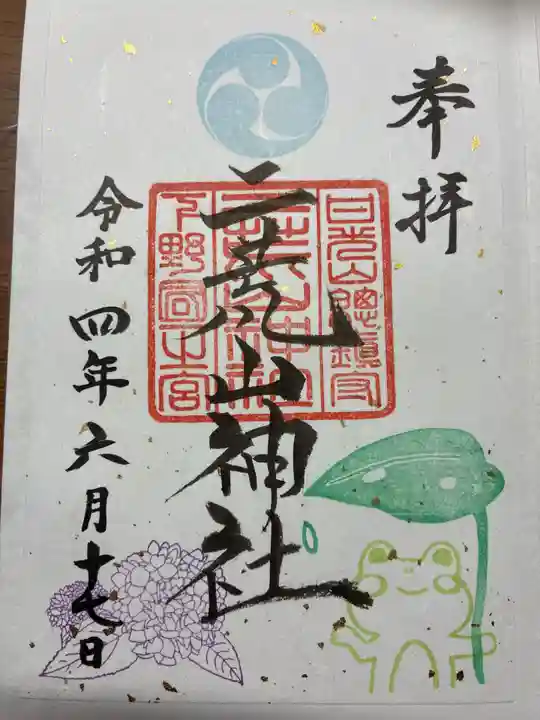 奉拝
日光山總鎮守
二荒山神社
下野國一宮
二荒山神社
令和四年六月十七日